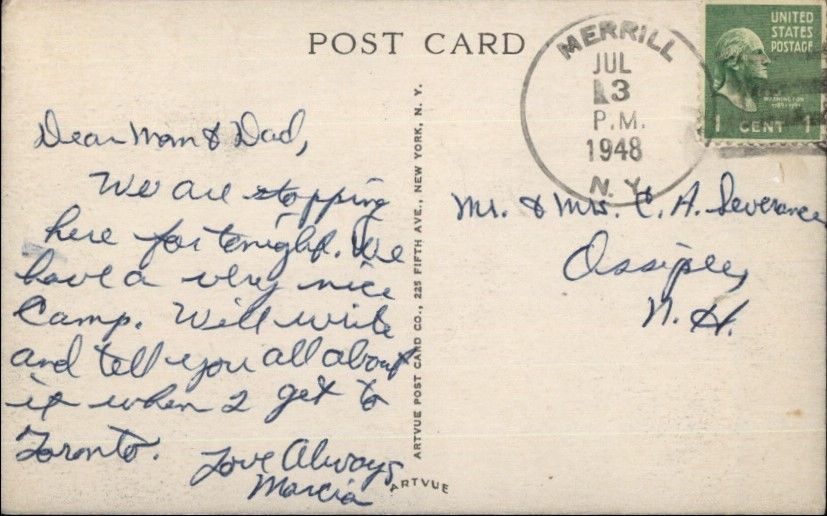 POST CARD
MERRILL
JUL
13
P.M.
1948
N.Y.
UNITED
STATES
POSTAGE
WASHINGTON
1 CENT 1
Dear Mom & Dad,
We are stopping
here for tonight. We
have a very nice
Camp. Will write
and tell you all about
it when I get to
Toronto.
Love Always
Marcia
ARTVUE POST CARD CO., 225 FIFTH AVE., NEW YORK, N. Y.
ARTVUE
Mr. & Mrs. C. A. Severance
Ossipee,
N. H.